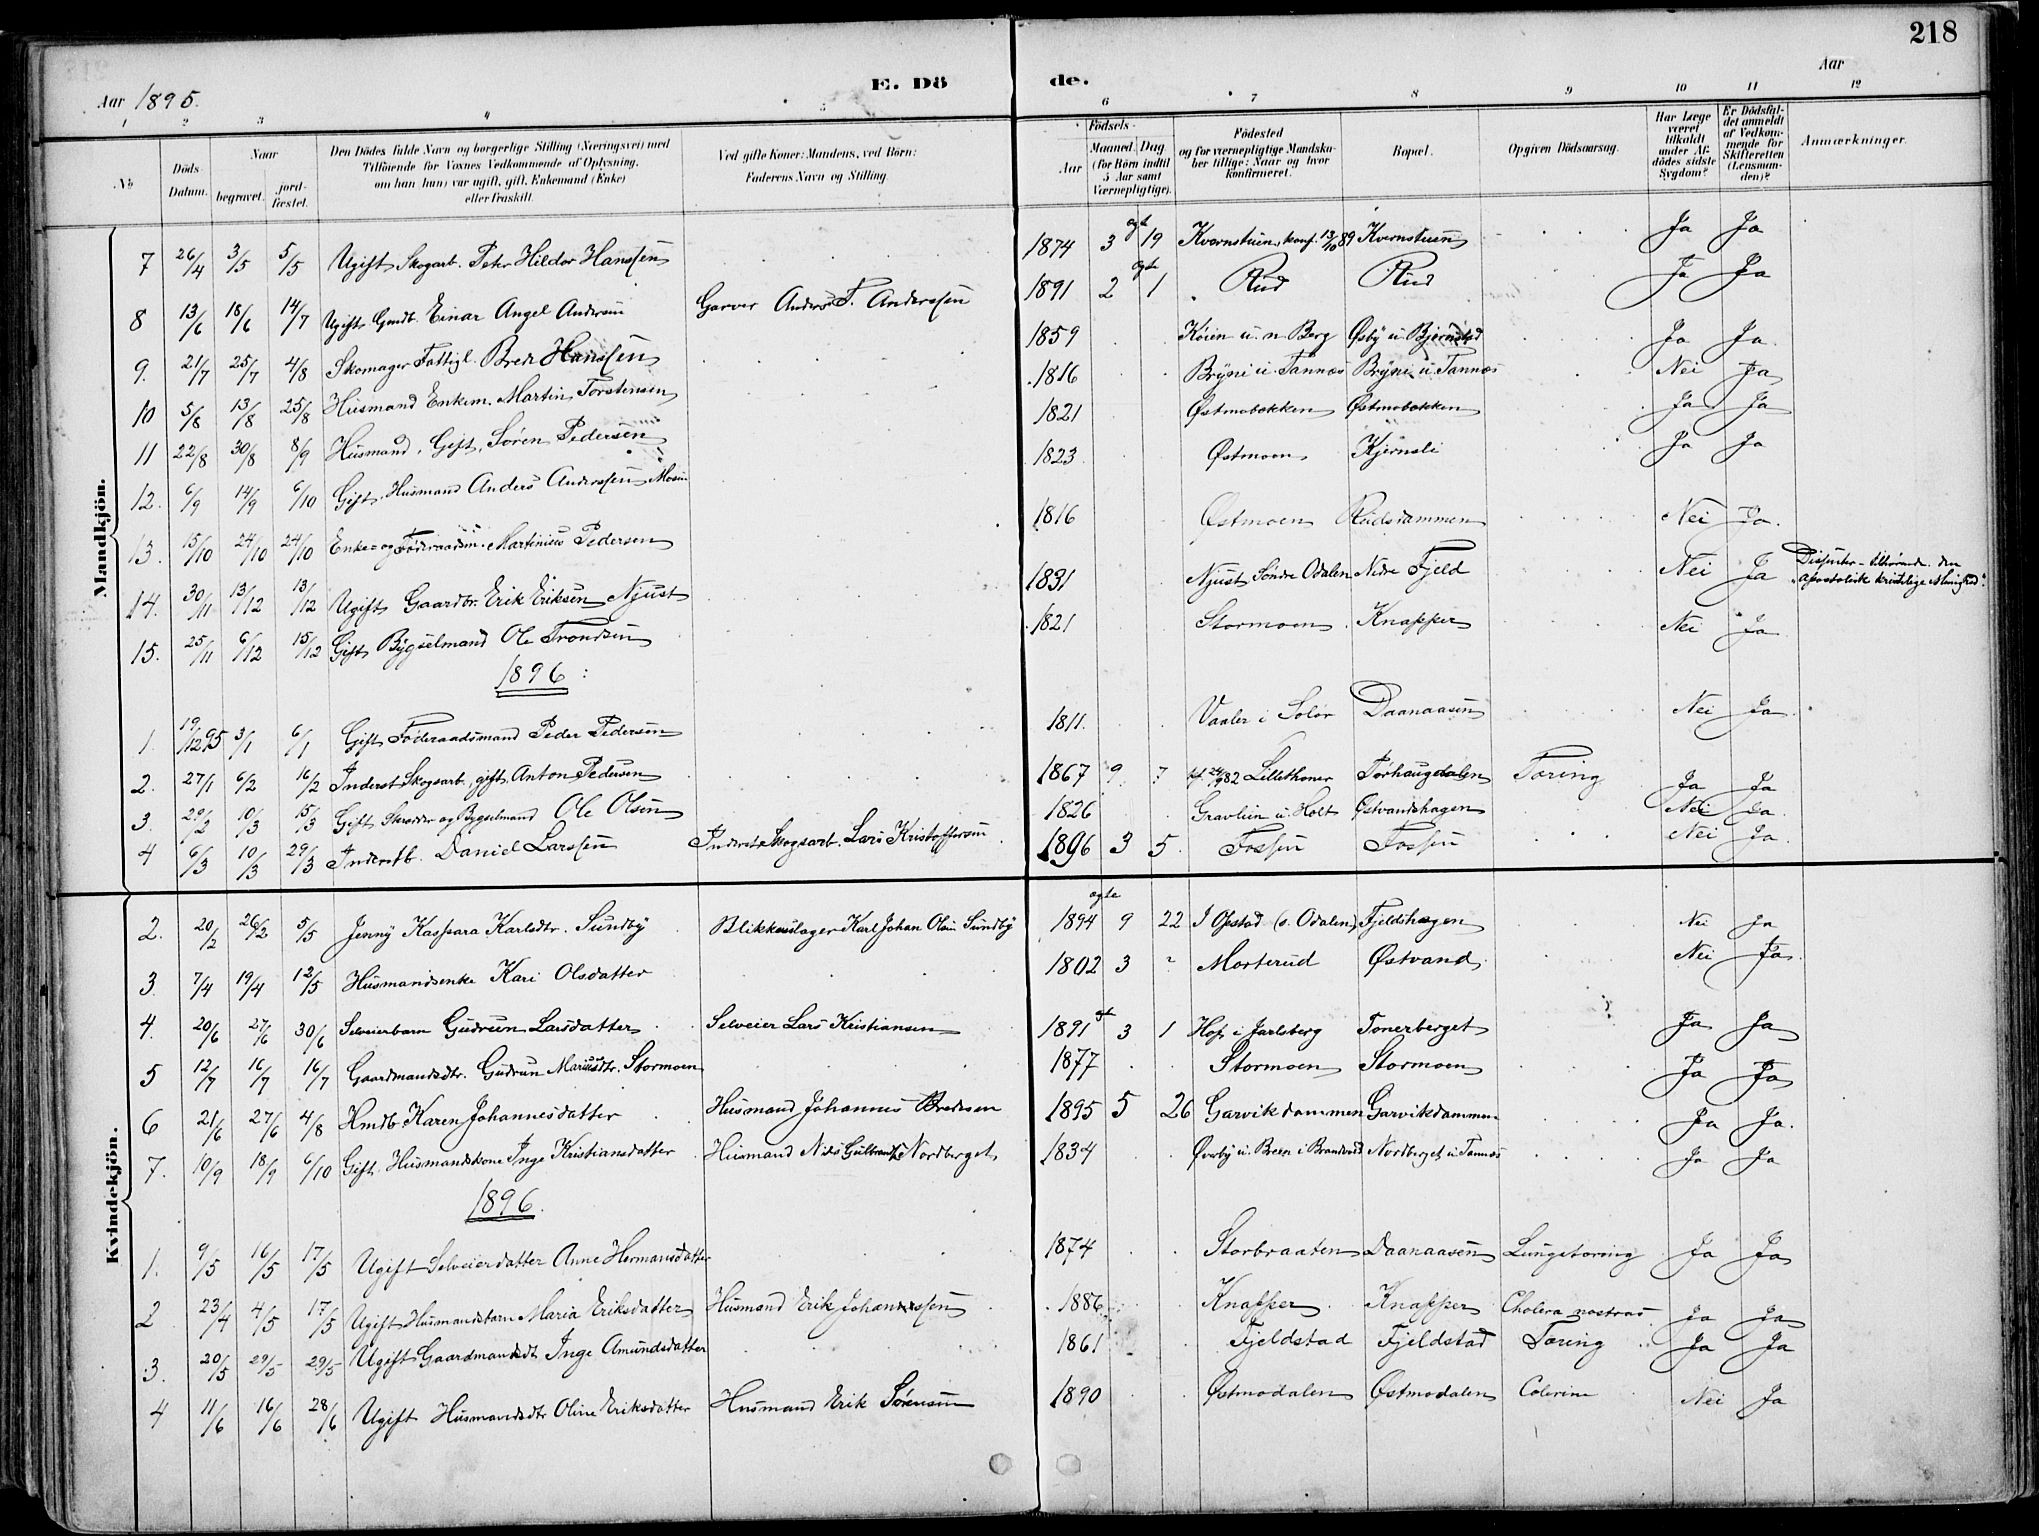 218
Aar 1895.
E. Dö de.
Aar
1 2 3 4 5 6 7 8 9 10 11 12
No
Döds-Datum.
Naar
begravet.
jord-fæstet.
Den Dödes fulde Navn og borgerlige Stilling (Næringsvei) med Tilföiende for Voxnes Vedkommende af Oplysning, om han (hun) var ugift, gift, Enkemand (Enke) eller fraskilt.
Ved gifte Koner: Mandens, ved Börn: Faderens Navn og Stilling
Födsels-
Aar
Maaned, Dag (for Börn indtil 5 Aar samt Værnepligtige).
Födested og for værnepligtige Mandskaber tillige: Naar og hvor konfirmeret.
Bopæl.
Opgiven Dödsaarsag.
Har Læge været tilkaldt under Afdödes sidste Sygdom?
Er Dödsfaldet anmeldt af Vedkommende for Skifteretten (Lensmanden)?
Anmærkninger.
Mandkjön.
7 26/4 3/5 5/5 Ugift Skogarb. Peter Hildor Hanssen 1874 3 agt 19 Kvernstuen, konf. 13/10 89 Kvernstuen Ja Ja
8 13/6 18/6 14/7 Ugift Gmdb. Einar Angel Andersen Garver Anders F. Anderssen 1891 2 1 Rud Rud Ja Ja
9. 21/7 25/7 4/8 Skomager Fattigl. Bred Hanssen 1859 Köien u. n. Berg Øsby u Bjørnstad Ja Ja.
10 5/8 13/8 25/8 Husmand Enkem. Martin Torstensen 1816 Bryni u. Tannæs Bryni u. Tannæs Nei Ja
11 22/8 30/8 8/9 Husmand, Gift, Sören Pedersen 1821 Østmobækken Østmobækken Ja Ja
12. 6/9 14/9 6/10 Gift Husmand Anders Anderssen Moen 1823 Østmoen Kjernsli Ja Ja
13. 15/10 24/10 24/10 Enke- og Föderaadsm. Martinius Pedersen 1816 Østmoen Rudsdammen Nei Ja.
14. 30/11 13/12 13/12 Ugift Gaardbr. Erik Eriksen Njust 1831 Njust Söndre Odalen Nedre Fjeld Nei Ja Dissenter - tilhörende den "apostolisk kristelige Menighed".
15. 25/11 6/12 15/12 Gift Bygselmand Ole Trondsen 1821 Stormoen Knapper Nei Ja
1896:
1. 19/12 95 3/1 6/1 Gift Föderaadsmand Peder Pedersen 1811. Vaaler i Solør Daanaasen Nei Ja
2. 27/1 6/2 16/2 Inderst Skogsarb., gift, Anton Pedersen 1867 9 ? kf. 24/9 82 Lillethoner Torhaugdalen Tæring Ja Ja
3. 29/2 10/3 15/3 Gift Skræder og Bygselmand Ole Olsen 1826 Gravlien u. Holt Østvandshagen Nei Ja.
4 6/3 10/3 29/3 Inderstb. Daniel Larssen Inderst Skogsarb. Lars Kristoffersen 1896 3 5. Fossen Fossen Nei Ja.
Kvindekjön.
2. 20/2 26/2 5/5 Jenny Kaspara Karlsdtr. Sundby Blikkenslager Karl Johan Olsen Sundby 1894 9 22 I Opstad (s. Odalen) Fjeldshagen Nei Ja
3. 7/4 19/4 12/5 Husmandsenke Kari Olsdatter 1802 3 ? Morterud Østvand Nei Ja
4. 20/6 27/6 30/6 Selveierbarn Gudrun Larsdatter Selveier Lars Kristiansen 1891 3 1 Hof i Jarlsberg Tonerberget Ja Ja
5 12/7 16/7 16/7 Gaardmandsdtr. Gudrun Mariusdtr. Stormoen 1877 Stormoen Stormoen Ja Ja
6 21/6 27/6 4/8 Hmdb. Karen Johannesdatter Husmand Johannes Bredesen 1895 5 26 Garvikdammen Garvikdammen Ja Ja.
7. 10/9 18/9 6/10 Gift Husmandskone Inge Kristiansdatter Husmand Nils Gulbrands. Nordberget 1834 Øverby u. Breen i Brandval Nordberget u Tannæs Ja Ja
1896.
1. 9/5 16/5 17/5 Ugift Selveierdatter Anne Hermansdatter 1874 Storbraaten Daanaasen Lungetæring Ja Ja
2 23/4 4/5 17/5 Ugift Husmandsbarn Maria Eriksdatter Husmand Erik Johannessen 1886 Knapper Knapper Cholera nostras Ja Ja
3. 20/5 29/5 29/5 Ugift Gaardmandsdt. Inge Amundsdatter 1861 Fjeldstad Fjeldstad Tæring Ja Ja
4 11/6 16/6 28/6 Ugift Husmandsdtr Oline Eriksdatter Husmand Erik Sørensen 1890 Østmodalen Østmodalen Colerine Nei Ja